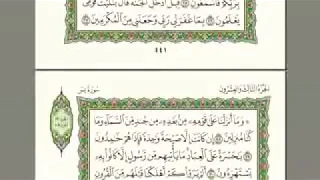 بِرَبِّكُمْ فَاسْمَعُونِ ۝ قِيلَ ادْخُلِ الْجَنَّةَ قَالَ يَٰلَيْتَ قَوْمِي
يَعْلَمُونَ ۝ بِمَا غَفَرَ لِي رَبِّي وَجَعَلَنِي مِنَ الْمُكْرَمِينَ ۝
٤٤١
الجزء الثالث والعشرون سورة يس
۞ وَمَا أَنزَلْنَا عَلَىٰ قَوْمِهِ مِن بَعْدِهِ مِن جُندٍ مِّنَ السَّمَاءِ وَمَا
كُنَّا مُنزِلِينَ ۝ إِن كَانَتْ إِلَّا صَيْحَةً وَٰحِدَةً فَإِذَا هُمْ خَٰمِدُونَ
يَٰحَسْرَةً عَلَى الْعِبَادِ مَا يَأْتِيهِم مِّن رَّسُولٍ إِلَّا كَانُوا بِهِ
يَسْتَهْزِءُونَ ۝ أَلَمْ يَرَوْا كَمْ أَهْلَكْنَا قَبْلَهُم مِّنَ الْقُرُونِ